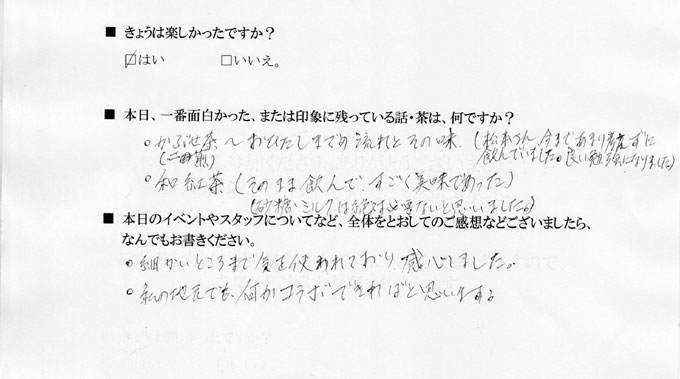 ■ きょうは楽しかったですか？
☑はい □いいえ。
■ 本日、一番面白かった、または印象に残っている話・茶は、何ですか？
○かぶせ茶〜おひたしまでの流れとその味（松本さん、今まであまり考えずに
（二回煎） 飲んでいました。良い勉強になりました）
○和紅茶（そのまま飲んで、すごく美味であった）
（砂糖・ミルクは絶対必要ないと思いました。）
■ 本日のイベントやスタッフについてなど、全体をとおしてのご感想などございましたら、
なんでもお書きください。
○細かいところまで気を使われており、感心しました。
○私の地元でも、何かコラボできればと思います。